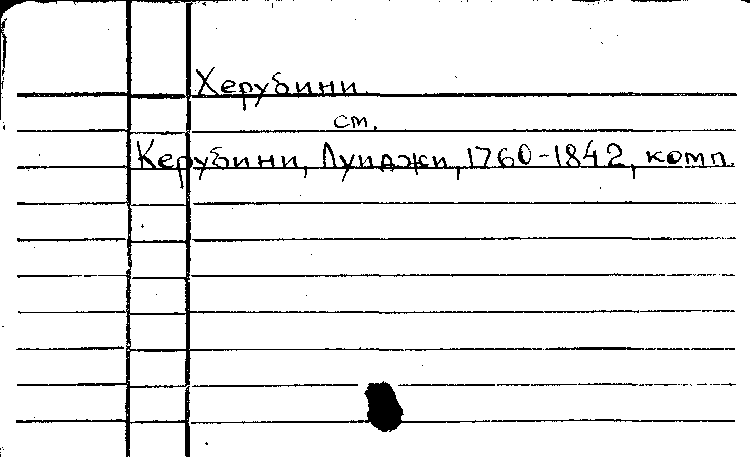 Херубини
см.
Керубини, Луиджи, 1760-1842, комп.